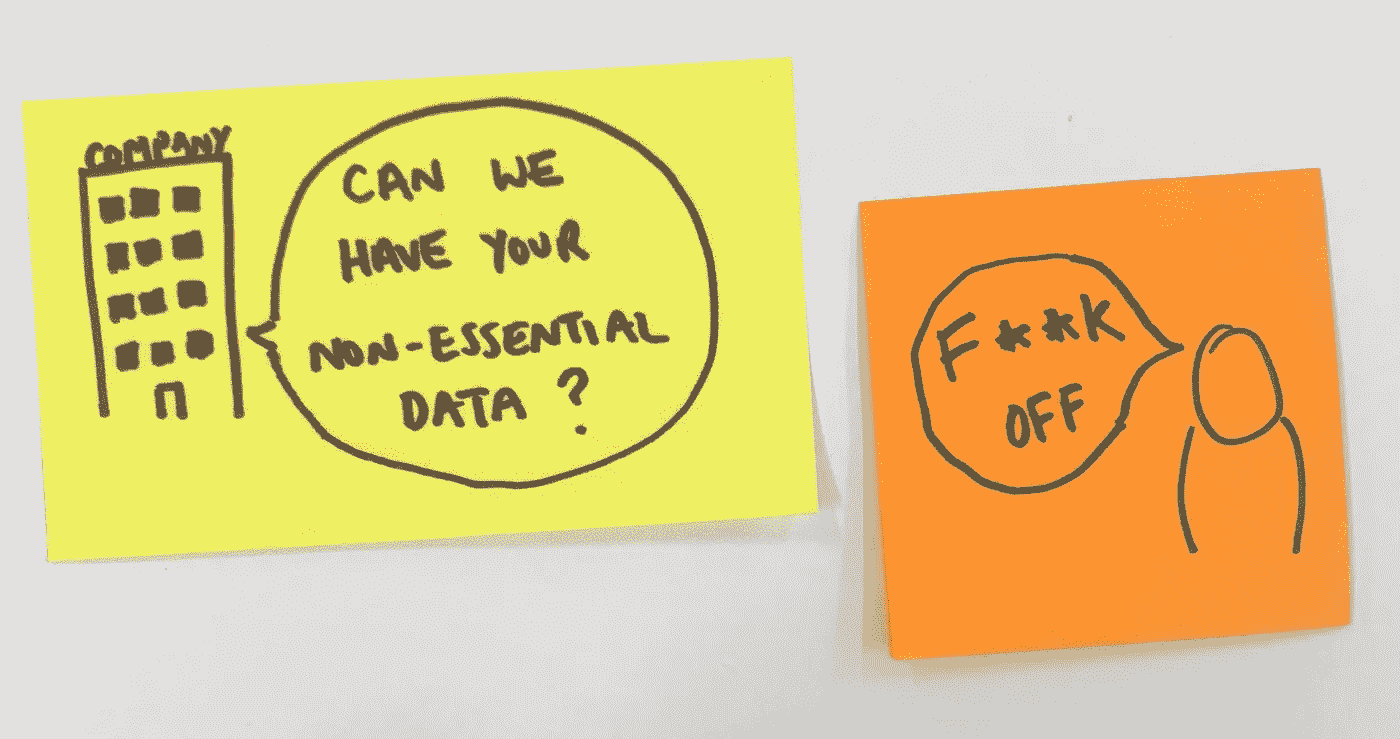 COMPANY
CAN WE
HAVE YOUR
NON-ESSENTIAL
DATA ?
F**K
OFF